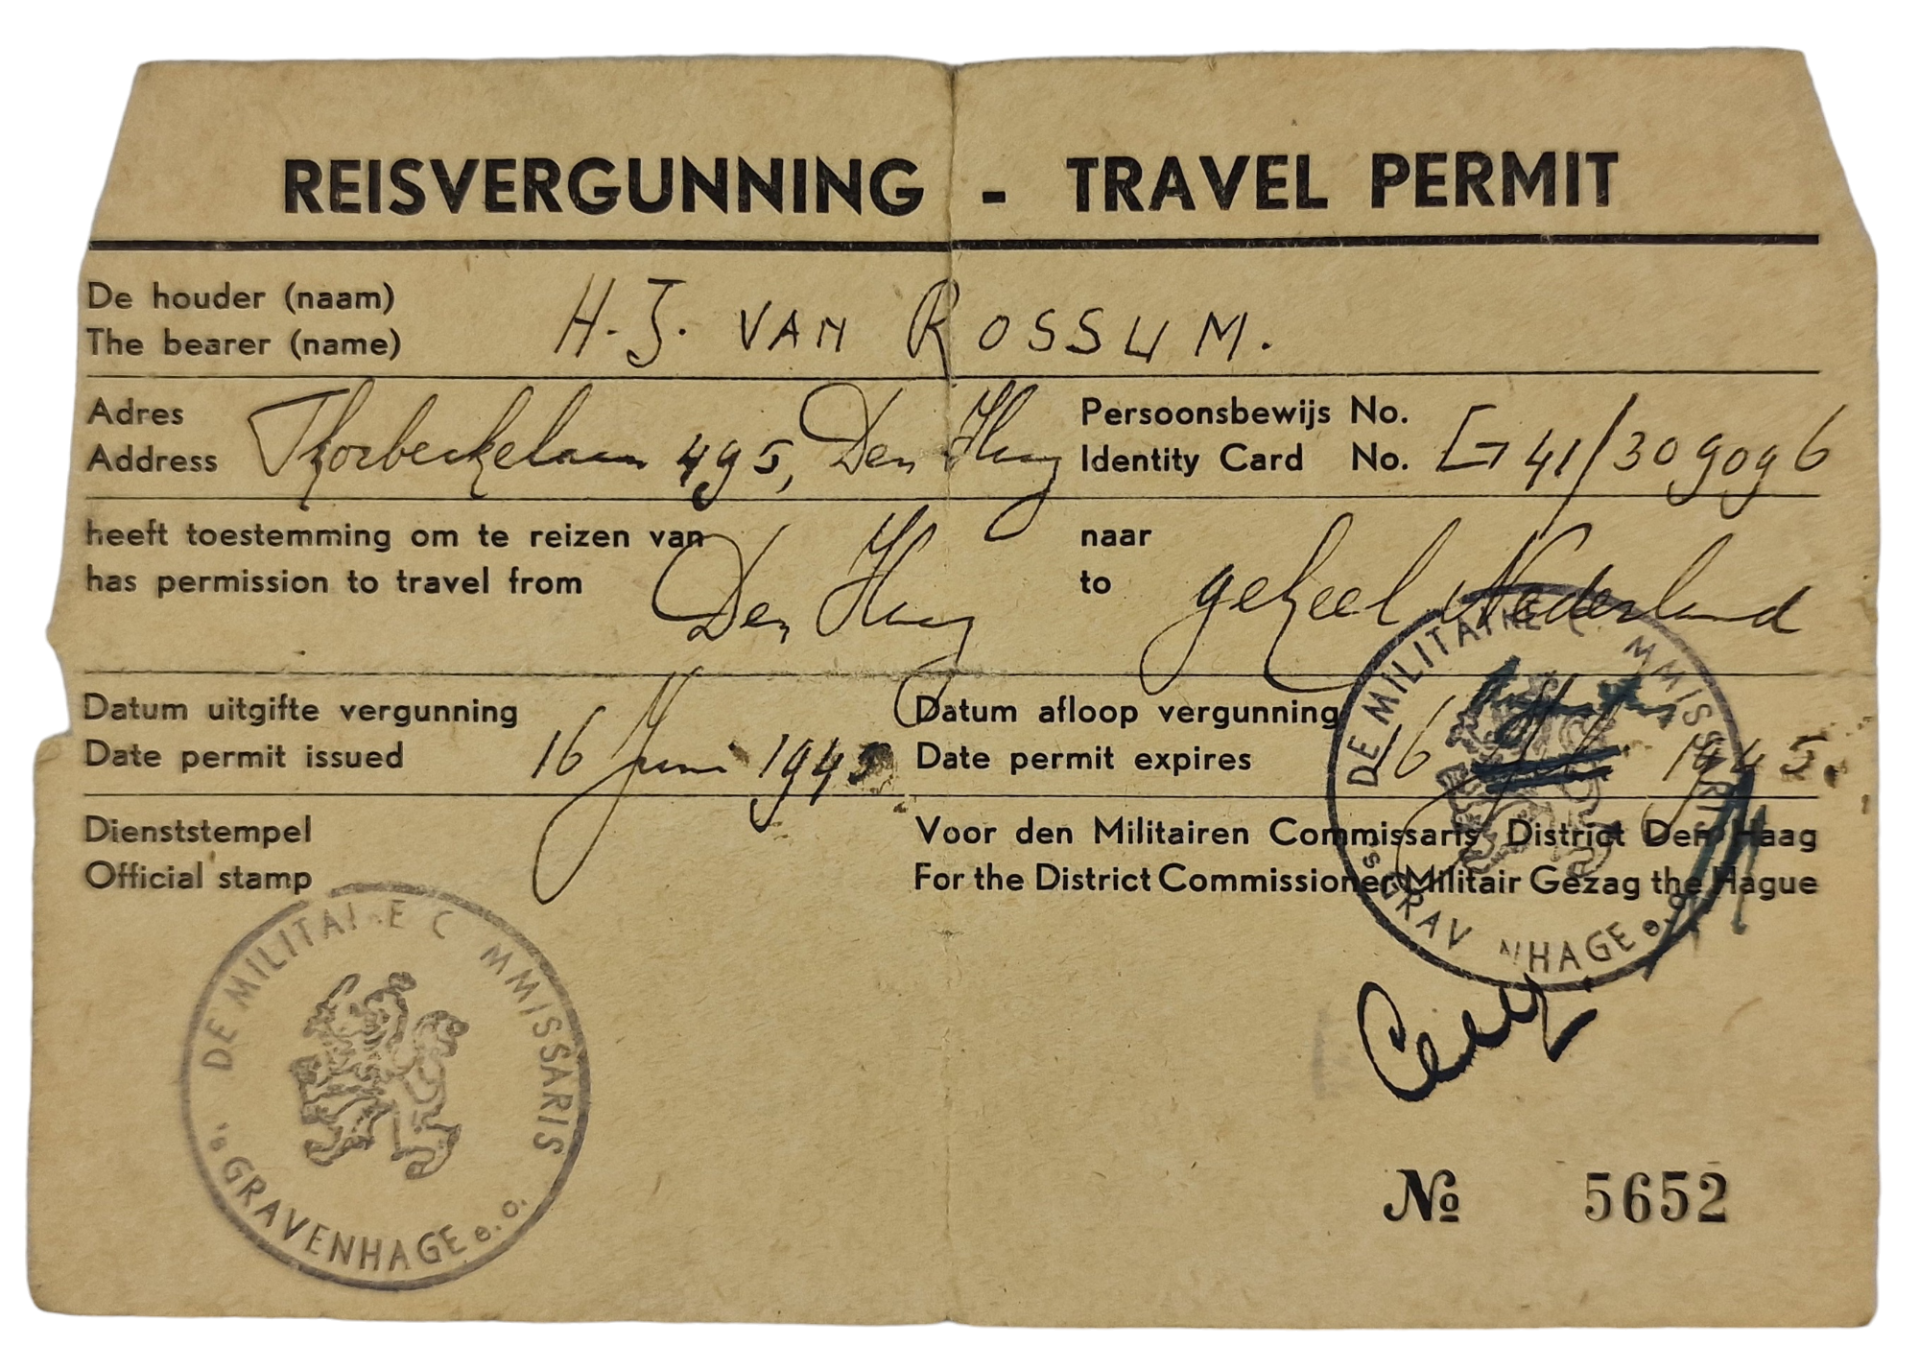 REISVERGUNNING - TRAVEL PERMIT
De houder (naam)
The bearer (name) H.J. VAN ROSSUM.
Adres
Address Thorbeckelaan 495, Den Haag
Persoonsbewijs No.
Identity Card No. G 41/309096
heeft toestemming om te reizen van
has permission to travel from Den Haag
naar
to geheel Nederland
Datum uitgifte vergunning
Date permit issued 16 Juni 1945
Datum afloop vergunning
Date permit expires 16 1945.
Dienststempel
Official stamp
Voor den Militairen Commissaris District Den Haag
For the District Commissioner Militair Gezag the Hague
DE MILITAI E C MMISSARIS
's GRAVENHAGE e.o.
DE MILITAIRE C MMISSARI
's GRAV NHAGE e.o.
No 5652